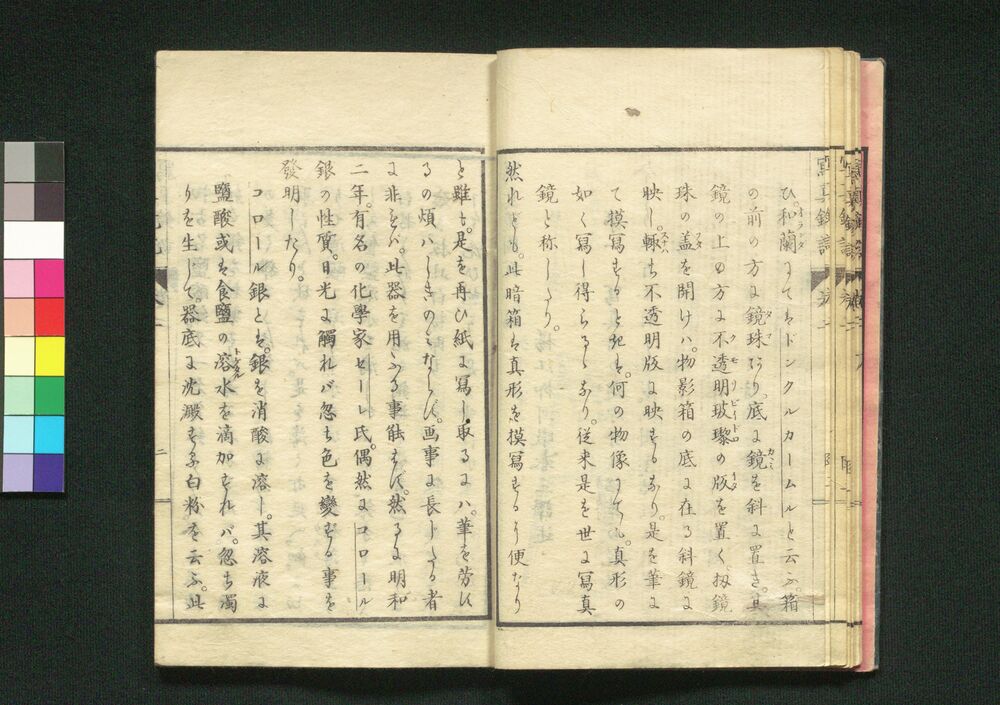 ひ。和蘭にてはドンクルカームルと云ふ箱
の前の方に鏡珠あり。底に鏡を斜に置き。其
鏡の上の方に不透明玻瓈の版を置く。扨鏡
珠の盖を開けハ。物影箱の底に在る斜鏡に
映し。輙ち不透明版に映するなり。是を筆に
て摸寫するときは。何の物像にても。真形の
如く寫し得らるゝなり。従来是を世に寫真
鏡と称したり。
然れとも。此暗箱は真形を摸寫するに便なり
と雖も。是を再ひ紙に寫し取るにハ。筆を労する
の煩ハしきのみならす。画事に長したる者
に非されハ。此器を用ふる事能はす。然るに明和
二年。有名の化學家セーレ氏。偶然にコロール
銀の性質。日光に觸れバ忽ち色を變する事を
發明したり。
コロール銀とは。銀を消酸に溶し。其溶液に
鹽酸或は食鹽の溶水を滴加すれバ。忽ち濁
りを生して。器底に沈澱する白粉を云ふ。此